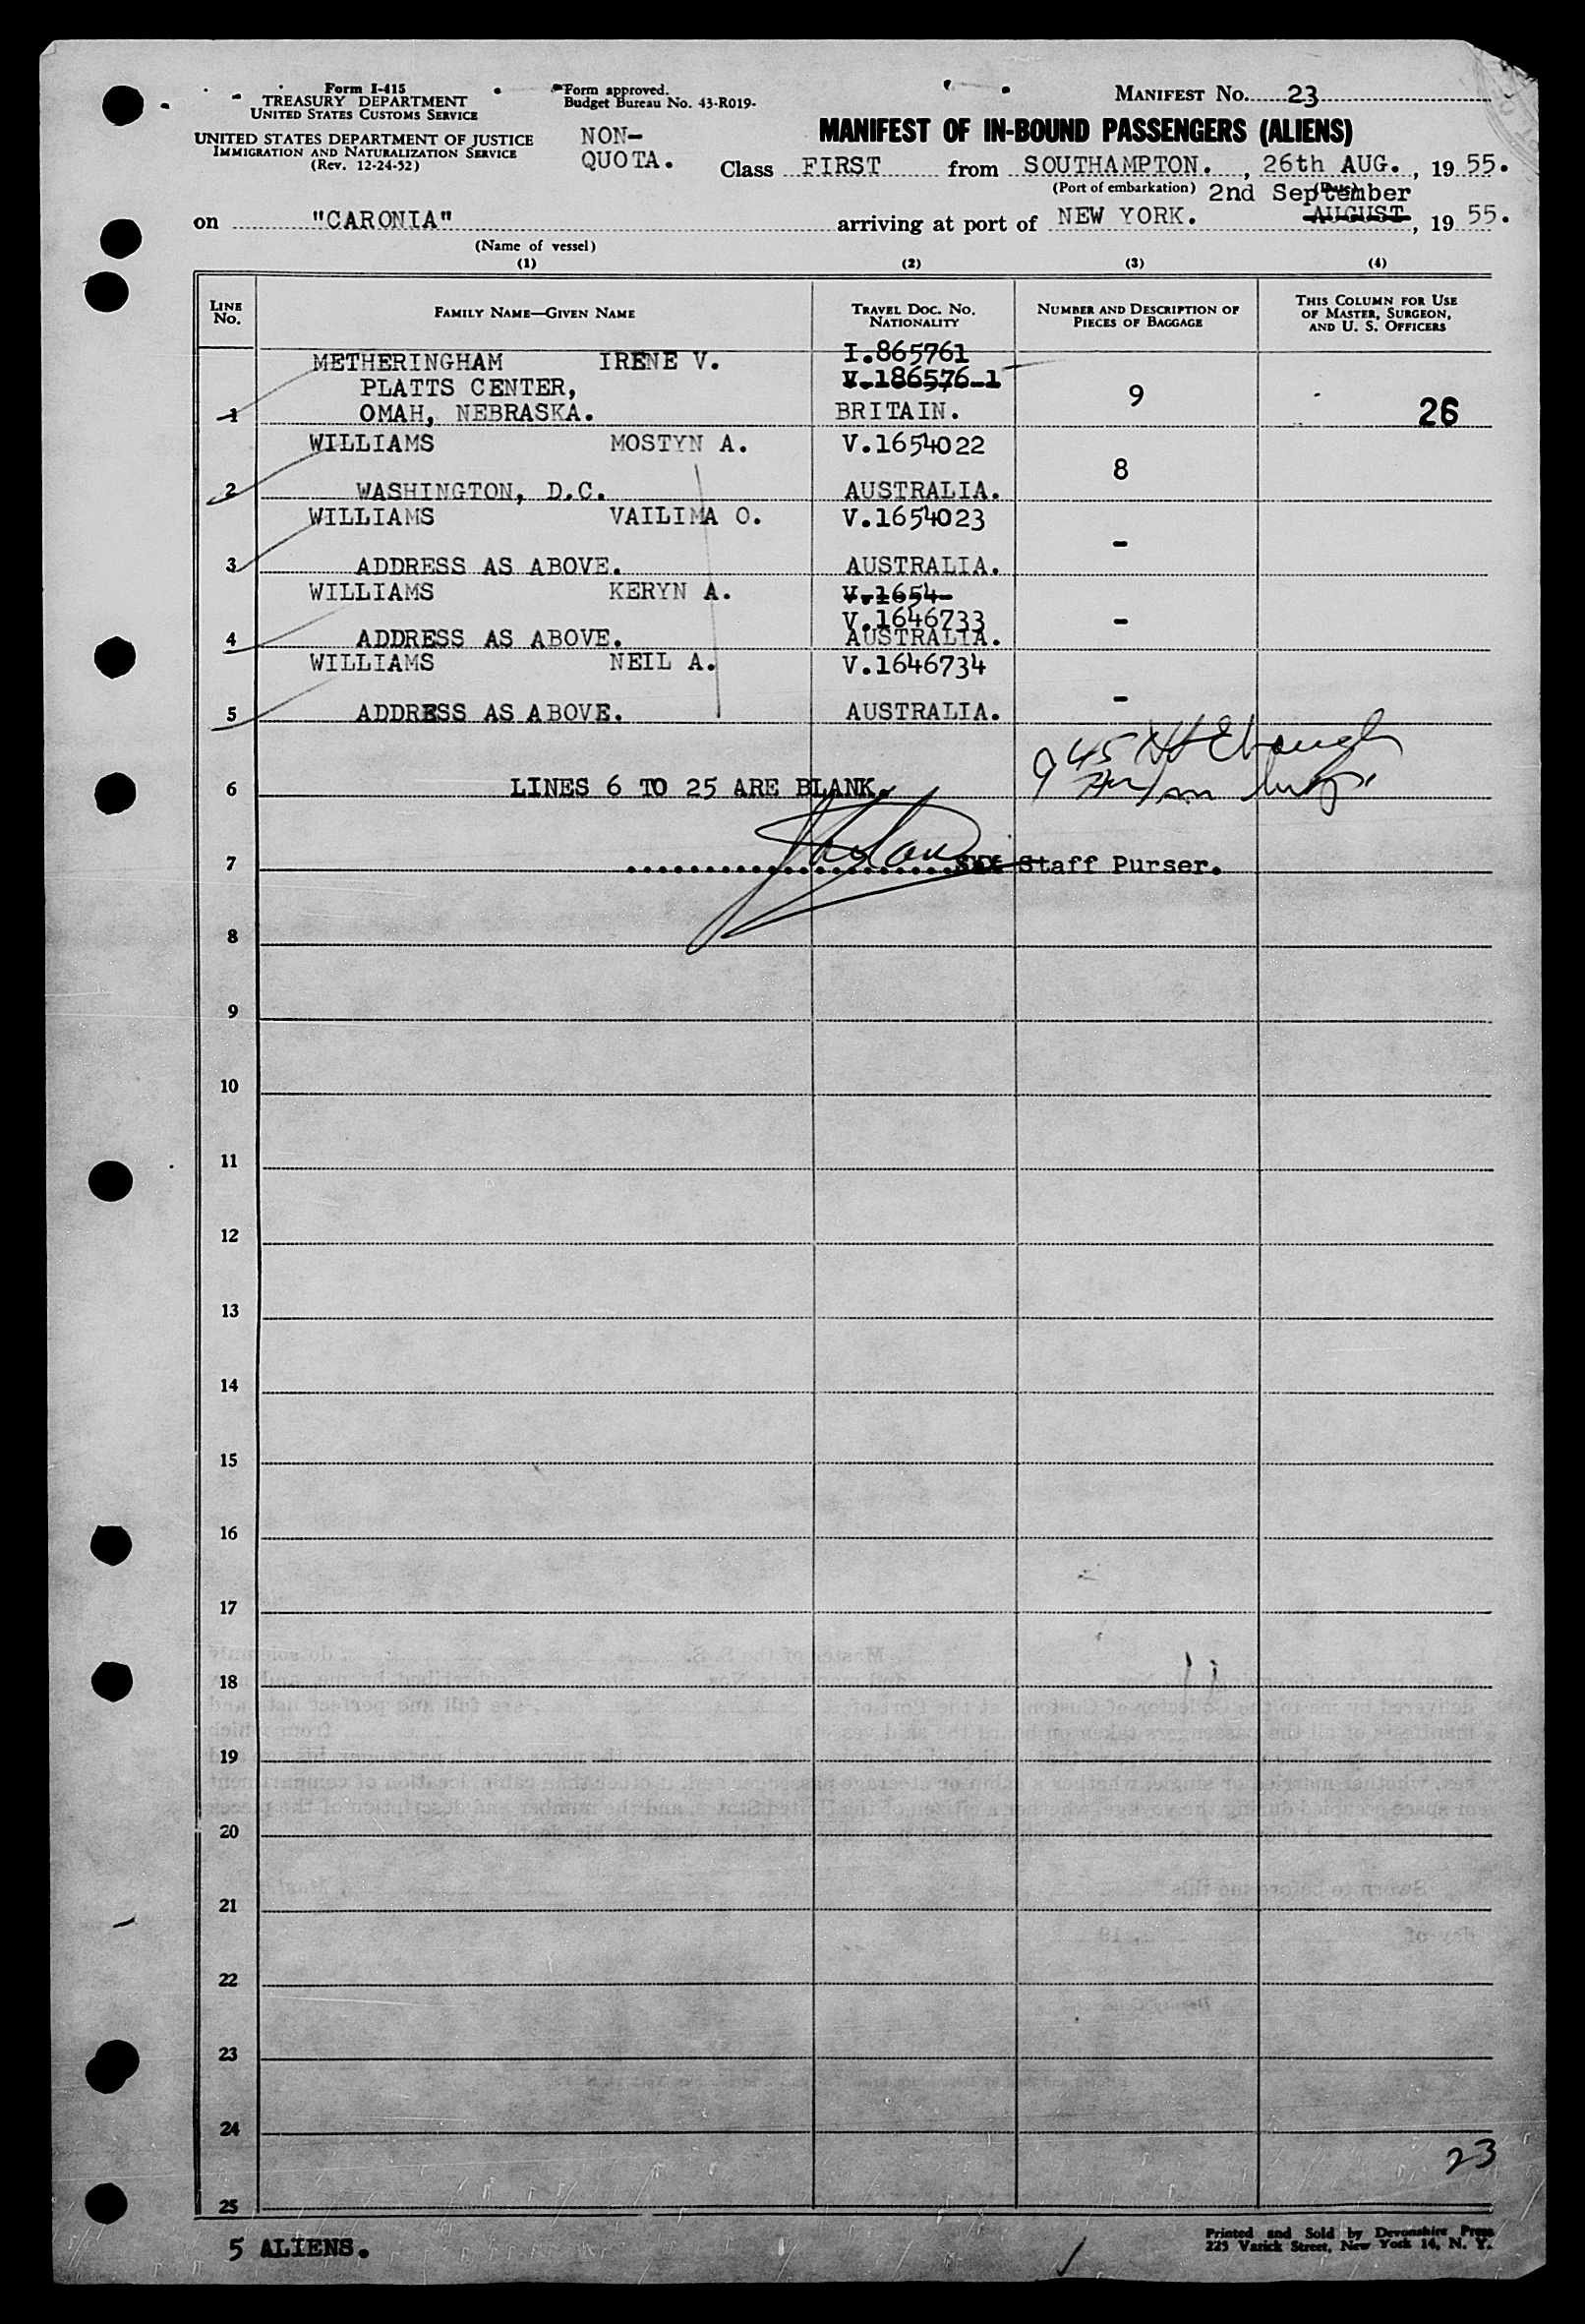 Form I-415
TREASURY DEPARTMENT
UNITED STATES CUSTOMS SERVICE
UNITED STATES DEPARTMENT OF JUSTICE
IMMIGRATION AND NATURALIZATION SERVICE
(Rev. 12-24-52)
Form approved.
Budget Bureau No. 43-R019-
NON-
QUOTA.
MANIFEST No. 23
MANIFEST OF IN-BOUND PASSENGERS (ALIENS)
Class FIRST from SOUTHAMPTON. , 26th AUG. , 19 55.
(Port of embarkation) 2nd September
on "CARONIA" arriving at port of NEW YORK. AUGUST , 19 55.
(Name of vessel)
(1) (2) (3) (4)
LINE No. FAMILY NAME—GIVEN NAME TRAVEL DOC. NO. NATIONALITY NUMBER AND DESCRIPTION OF PIECES OF BAGGAGE THIS COLUMN FOR USE OF MASTER, SURGEON, AND U. S. OFFICERS
METHERINGHAM IRENE V. I.865761
PLATTS CENTER, V.186576-1
1 OMAH, NEBRASKA. BRITAIN. 9 26
WILLIAMS MOSTYN A. V.1654022
8
2 WASHINGTON, D.C. AUSTRALIA.
WILLIAMS VAILIMA O. V.1654023
-
3 ADDRESS AS ABOVE. AUSTRALIA.
WILLIAMS KERYN A. V.1654-
V.1646733 -
4 ADDRESS AS ABOVE. AUSTRALIA.
WILLIAMS NEIL A. V.1646734
-
5 ADDRESS AS ABOVE. AUSTRALIA.
6 LINES 6 TO 25 ARE BLANK.
7 Staff Purser.
8
9
10
11
12
13
14
15
16
17
18
19
20
21
22
23
24
23
25
5 ALIENS.
Printed and Sold by Devonshire Press
225 Varick Street, New York 14, N. Y.